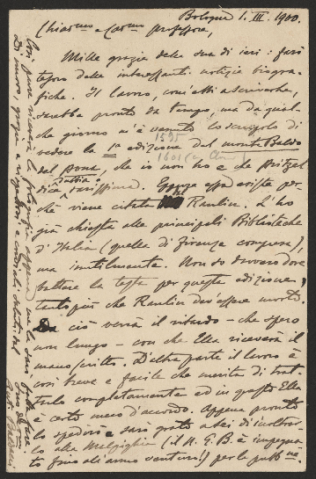 Bologna 1. III. 1900.
Chiar.mo e Car.mo professore,
Mille grazie della sua di ieri: farò
tesoro delle interessanti notizie biogra-
fiche. Il lavoro, com'ebbi a scriverle,
sarebbe pronto da tempo, ma da qual-
che giorno m'è venuto lo scrupolo di
vedere la 1a edizione del monte Baldo
1595
1601
del Pona, che io non ho e che Pritzel
dice rarissima. esista per-
chè viene citata Haulica. L'ho
già chiesta alle principali Biblioteche
d'Italia (quella di Firenze compresa),
ma inutilmente. Non so davvero dove
battere la testa per questa edizione,
tanto più che deve essere morto.
Da ciò verrà il ritardo – che spero
non lungo – con che Ella riceverà il
manoscritto. D'altra parte il lavoro è
così breve e facile che merita di trat-
tarlo completamente ed in questo Ella
è certo meco d'accordo. Appena pronto
lo spedirò e sarò grato a lei di inoltrar-
lo alla Malpighia (il N. G. B. è impegna-
to fino all'anno venturo!) per la pubb.ne
Di nuovo, grazie e